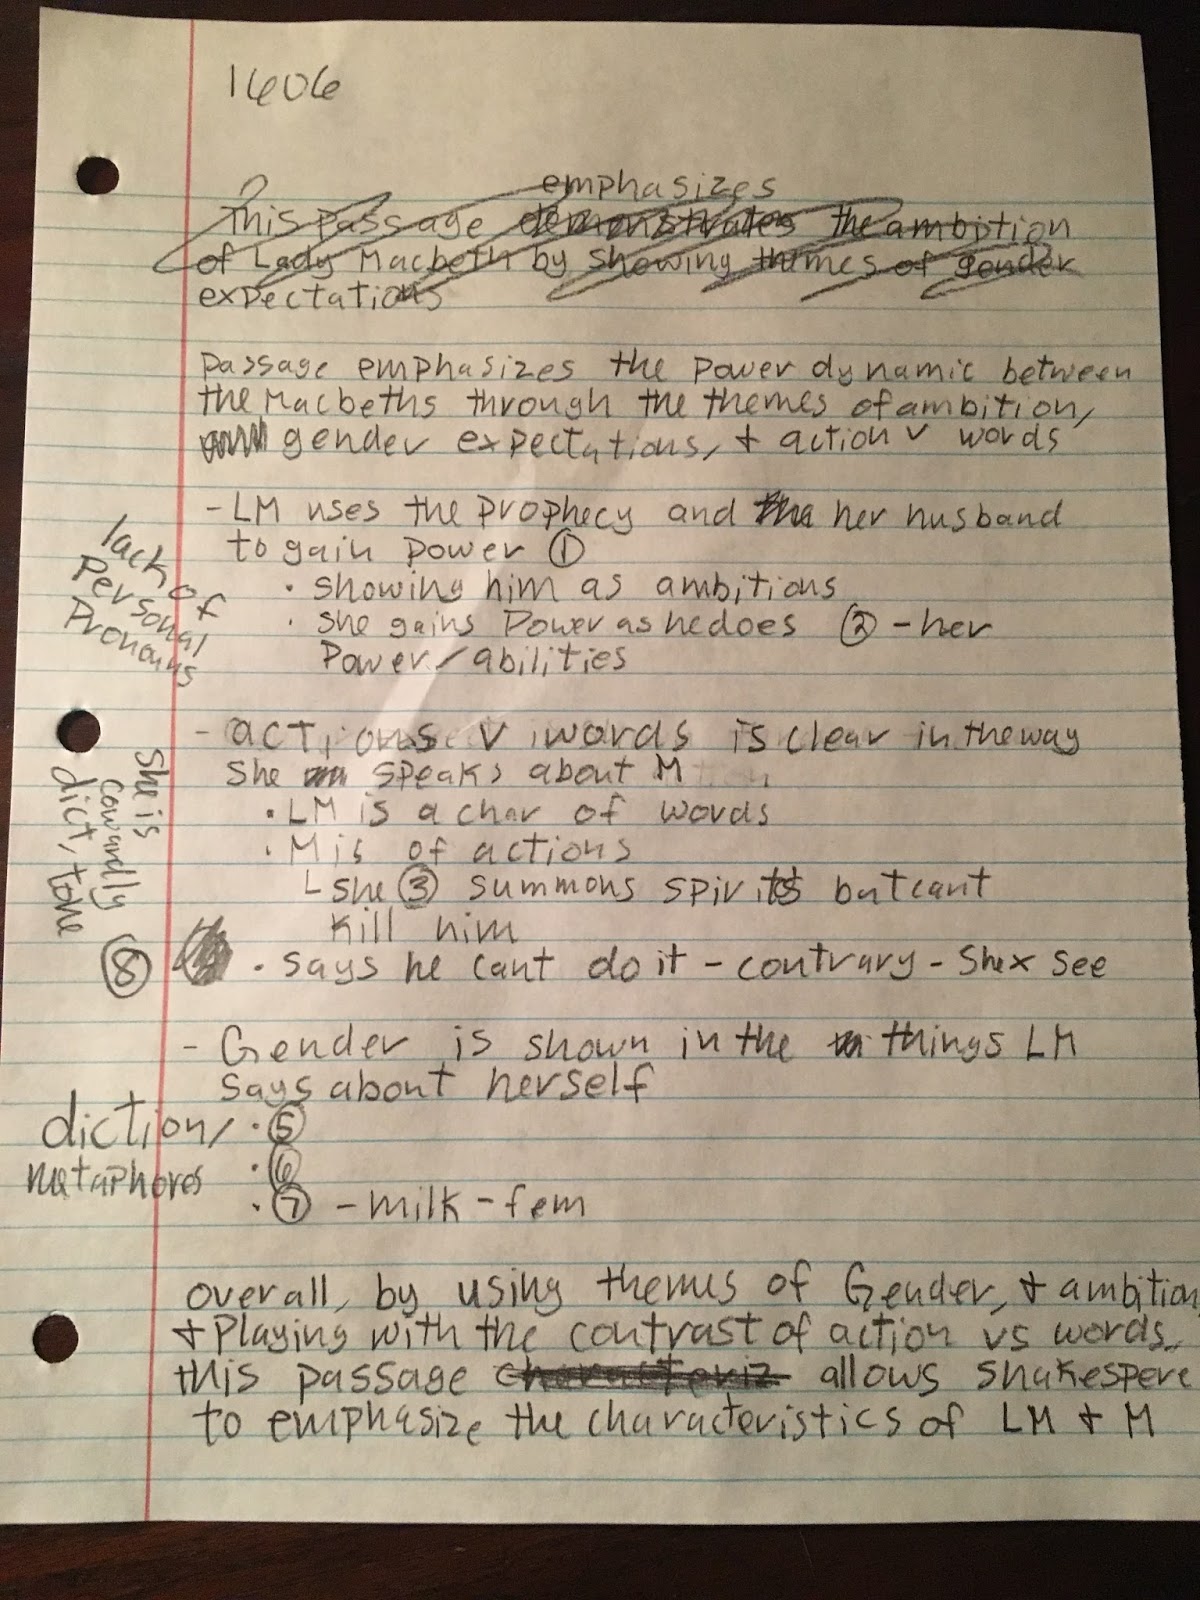 1606
emphasizes
This passage demonstrates the ambition
of Lady Macbeth by showing themes of gender
expectations
passage emphasizes the power dynamic between
the Macbeths through the themes of ambition,
gender expectations, + action v words
- LM uses the prophecy and her husband
to gain power ①
• showing him as ambitions
• she gains power as he does ② - her
power/abilities
lack of
personal
pronouns
- actions v words is clear in the way
she speaks about M
• LM is a char of words
• M is of actions
L she ③ summons spirits but cant
kill him
⑧ • says he cant do it - contrary - she x see
she is
cowardly
dict, tone
- Gender is shown in the things LM
says about herself
diction/
metaphores
• ⑤
• ⑥
• ⑦ - milk - fem
overall, by using themes of Gender, + ambition
+ playing with the contrast of action vs words,
this passage characteriz allows shakespere
to emphasize the characteristics of LM + M